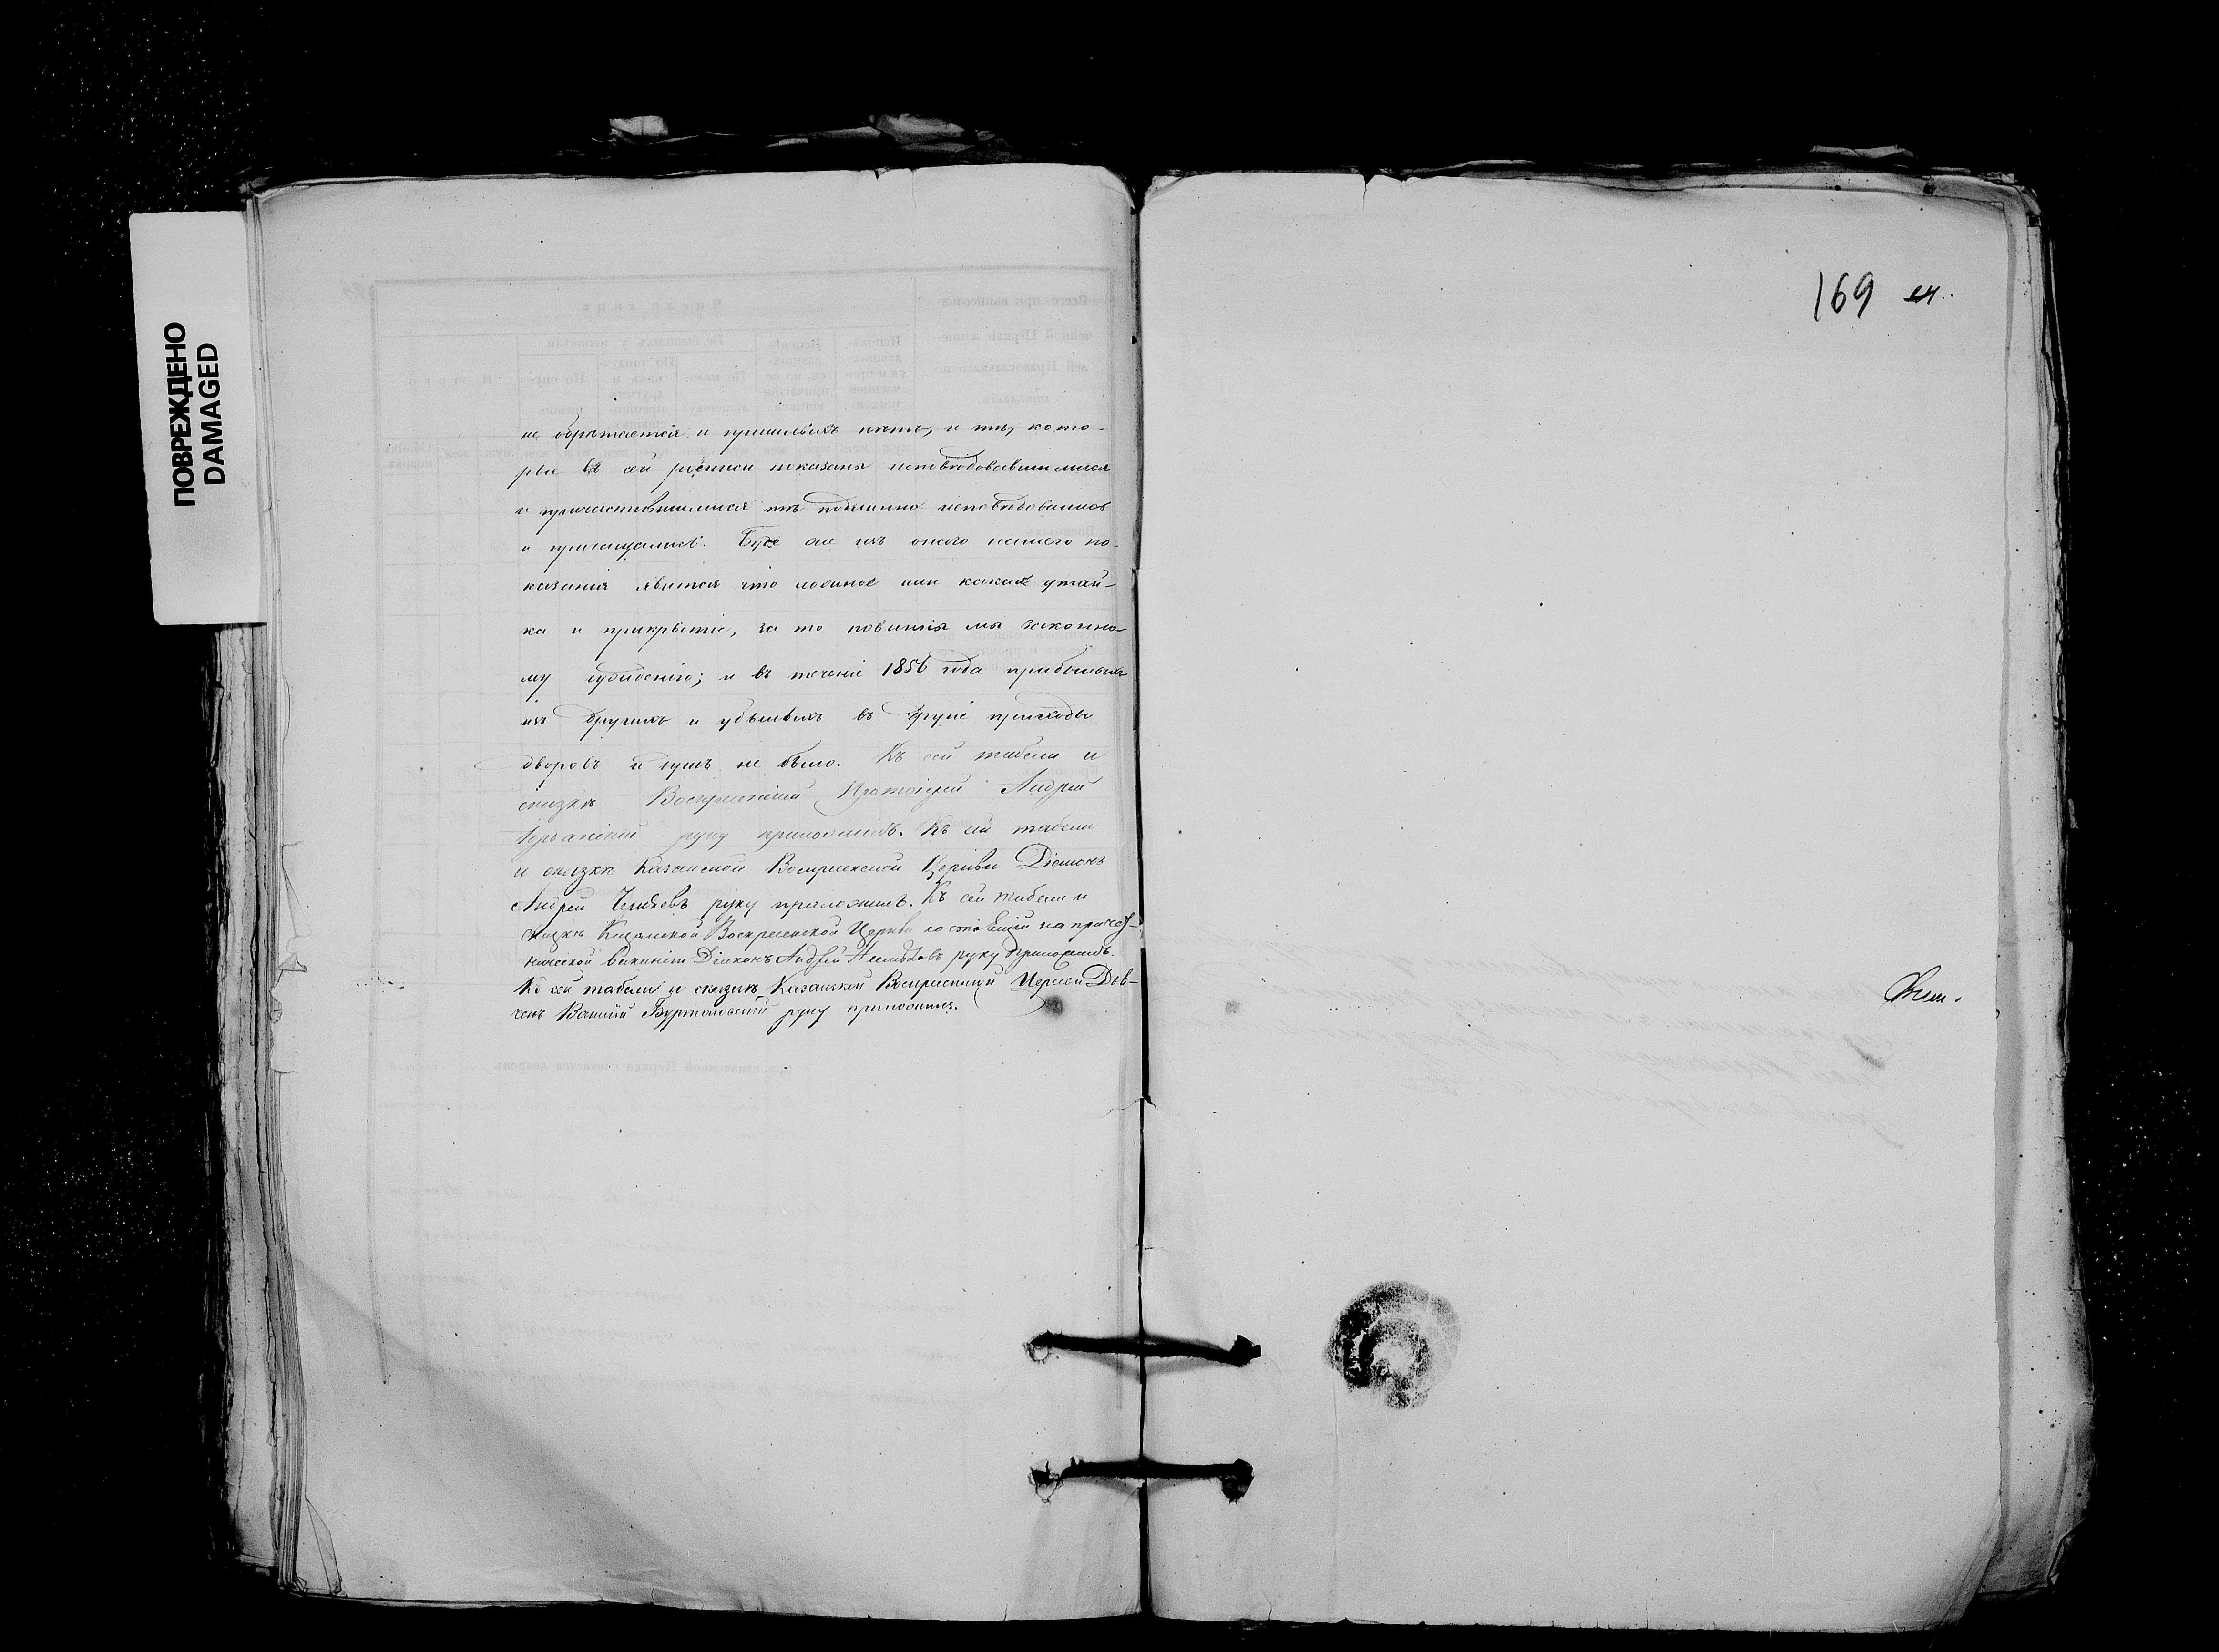 ПОВРЕЖДЕНО
DAMAGED
169
не обрѣтается и пришлыхъ нѣтъ, и тѣ, кото-
рые въ сей росписи показаны исповѣдовавшимися
и причастившимися тѣ подлинно исповѣдовались
и причащались. Буде же изъ онаго нашего по-
казанія явится что ложное или какая утай-
ка и прикрытіе, за то повинны мы законно-
му сужденію; и въ теченіе 1856 года прибылыхъ
изъ другихъ и убылыхъ въ другіе приходы
дворовъ и душъ не было. Къ сей табели и
сказкѣ Воскресенскій Протоіерей Андрей
руку приложилъ. Къ сей табели
и сказкѣ Казанской Воскресенской Церкви Діаконъ
Андрей руку приложилъ. Къ сей табели и
сказкѣ Казанской Воскресенской Церкви состоящій на причет-
нической вакансіи Діаконъ Андрей руку приложилъ.
Къ сей табели и сказкѣ Казанской Воскресенской Церкви Дья-
чекъ руку приложилъ.